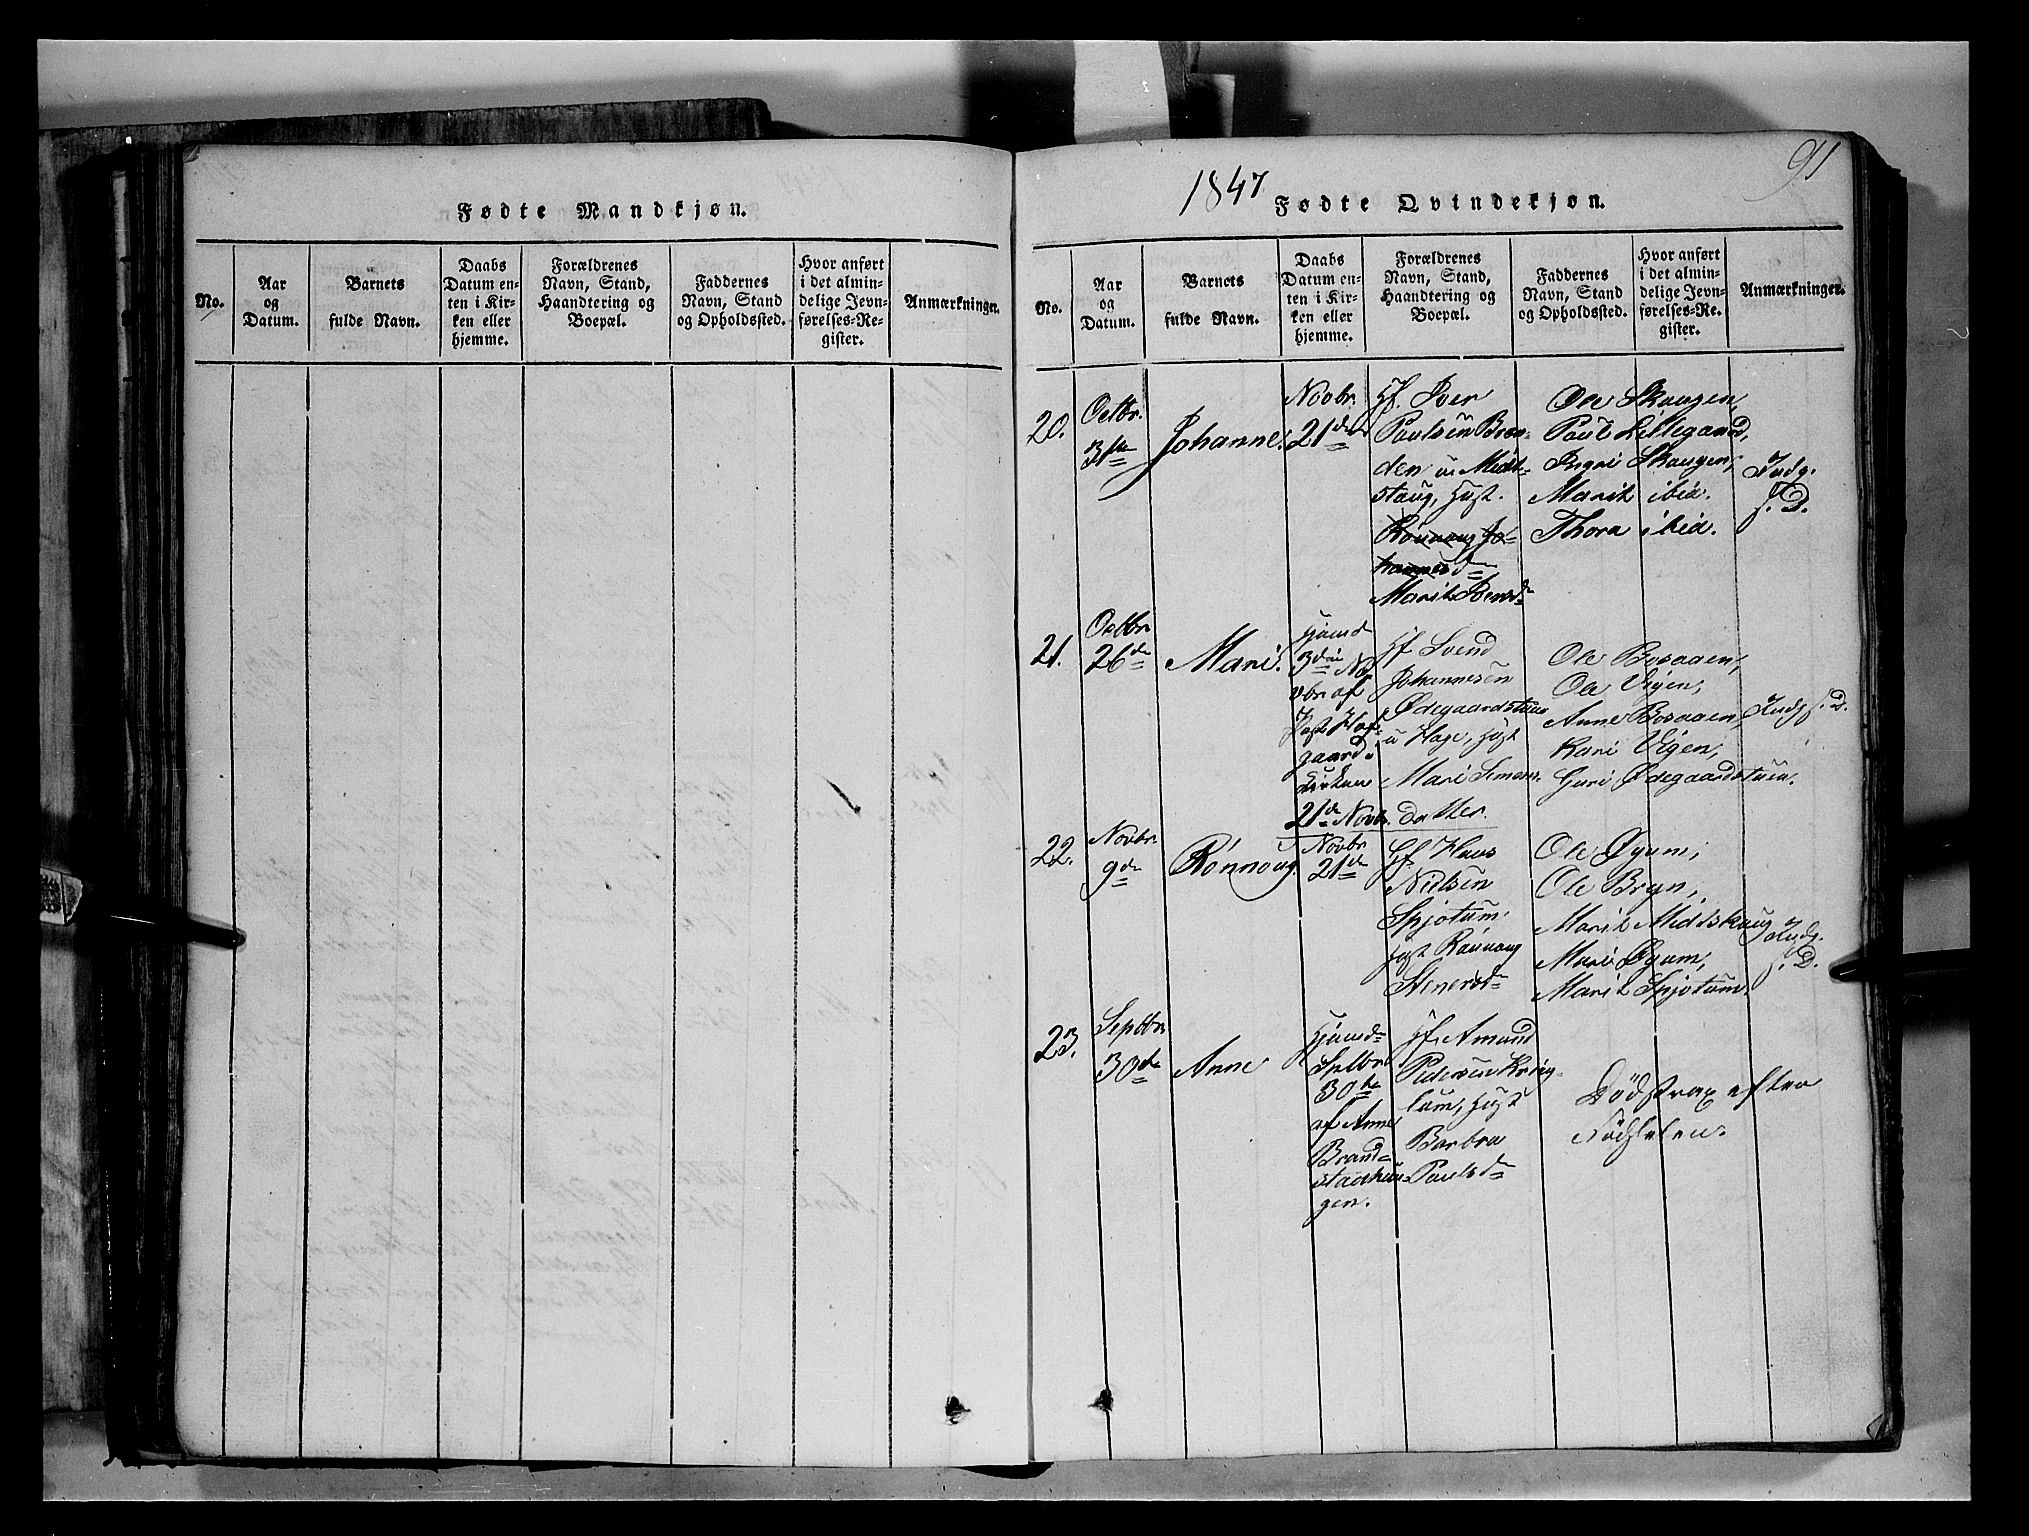 Fødte Mandkjøn.
No.
Aar
og
Datum.
Barnets
fulde Navn.
Daabs
Datum en-
ten i Kir-
ken eller
hjemme.
Forældrenes
Navn, Stand,
Haandtering og
Boepæl.
Faddernes
Navn, Stand
og Opholdssted.
Hvor anført
i det almin-
delige Jevn-
førelses-Re-
gister.
Anmærkninger.
91
1847
Fødte Qvindekjøn.
No.
Aar
og
Datum.
Barnets
fulde Navn.
Daabs
Datum en-
ten i Kir-
ken eller
hjemme.
Forældrenes
Navn, Stand,
Haandtering og
Boepæl.
Faddernes
Navn, Stand
og Opholdssted.
Hvor anført
i det almin-
delige Jevn-
førelses-Re-
gister.
Anmærkninger.
20.
Octbr.
31te
Johanne.
Novbr.
21de
Hf. Iver
Paulsen Bræn-
den u. Midt-
skoug, Hust.
Rønnaug Jo-
hannesd
Marit Iversd
Ole Skougen,
Paul Lillegaard,
Ingri Skougen,
Marit ibid.
Thora ibid.
Indg.
s. D.
21.
Octbr.
26de
Mari.
Hjemd
3die No-
vbr. af
gaard.
Kirken
21de Novbr.
Hf. Svend
Johannesen
Ødegaardstuen
u Hage, Hust
Mari Simens-
datter.
Ole Bosaaen,
Ole Vigen,
Anne Bosaaen,
Kari Vigen,
Guri Ødegaardstuen.
Indg. s. D.
22.
Novbr.
9de
Rønnoug.
Novbr
21de
Hf. Hans
Nielsen
Spjotum.
Hust Rønnaug
Stenersd
Ole Øyum,
Ole Bryn,
Marit Midtskoug
Mari Øyum,
Marit Spjotum.
Indg.
s. D.
23.
Septbr
30te
Anne
Hjemd
Sptbr
30te
af Anne
Brand-
gen.
Hf. Amund
Pedersen Kring-
lum, Hust
Barbra
Paulsd
Død strax efter
Fødselen.